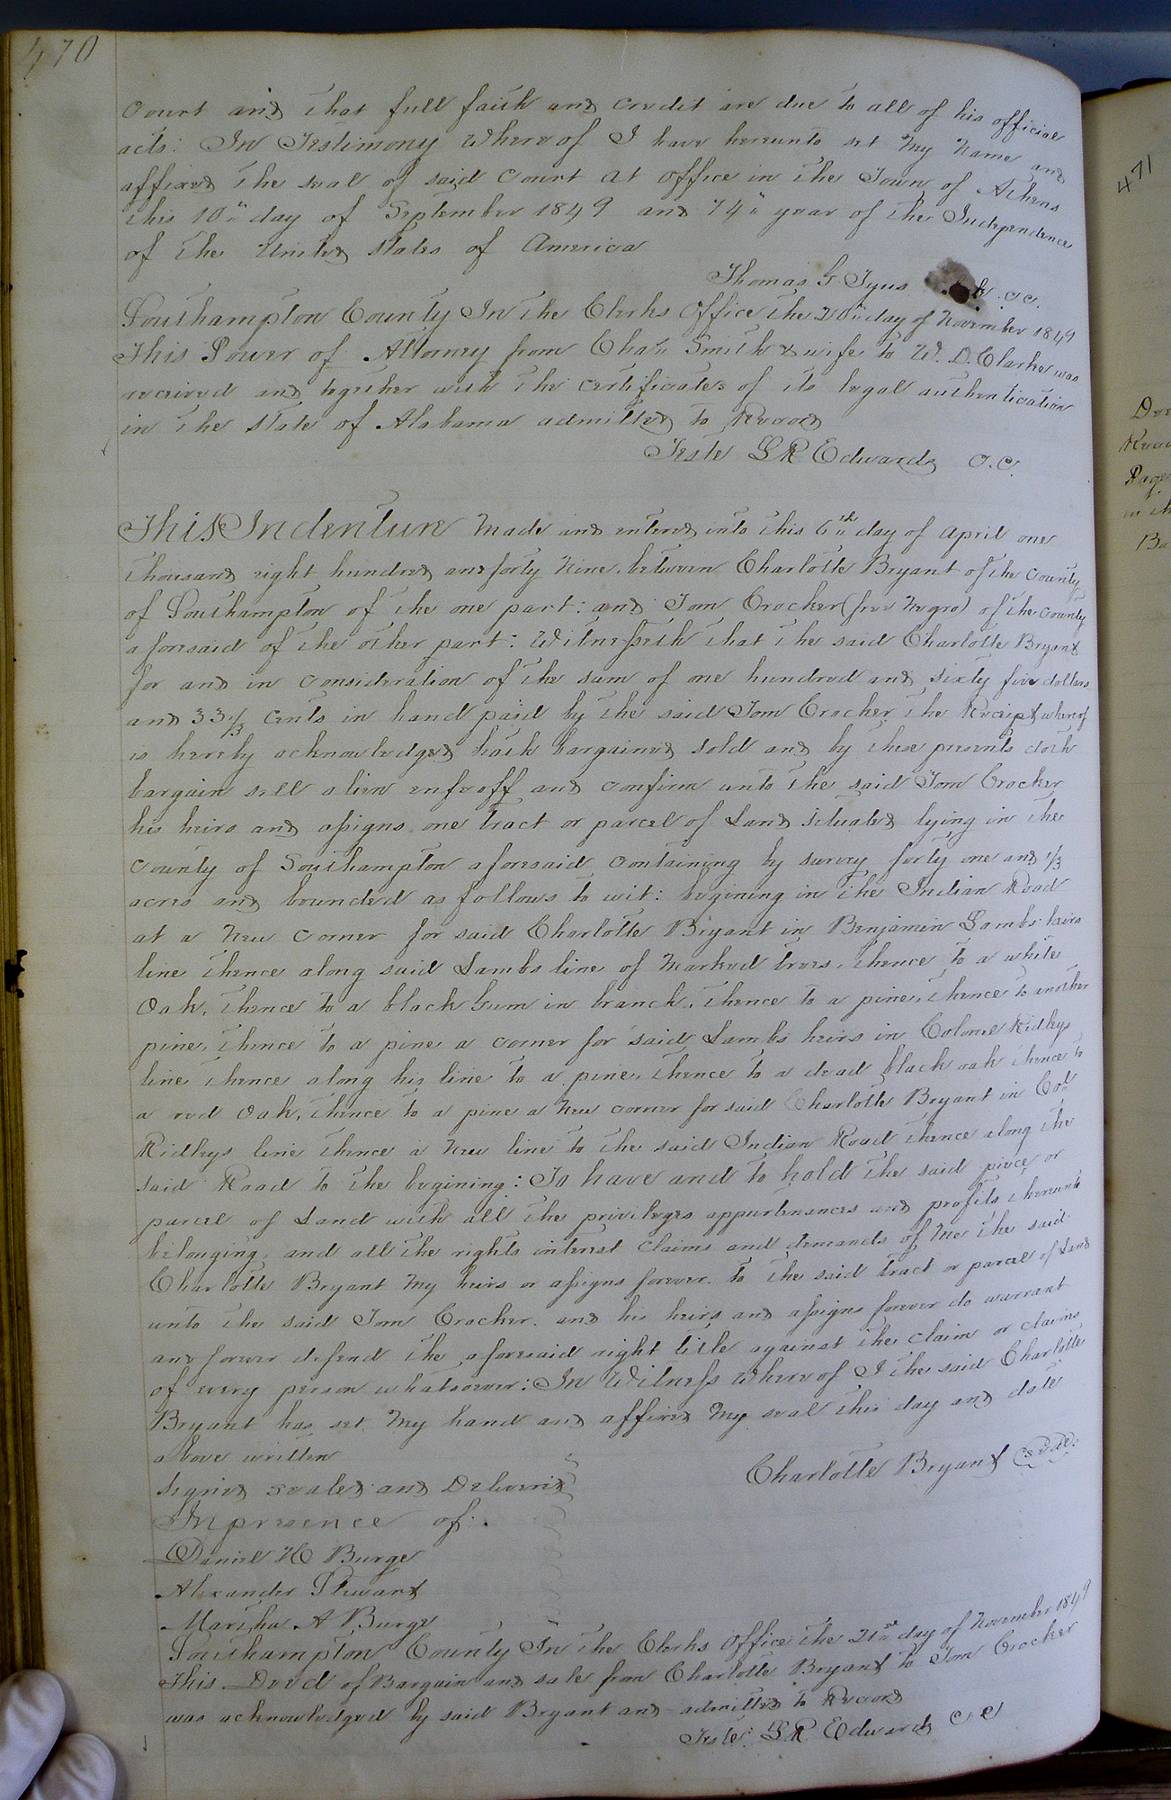 470
Court and that full faith and credit are due to all of his official
acts: In Testimony Whereof I have hereunto set My Name and
affixed the seal of said Court at office in the Town of Athens
this 10th day of September 1849 and 74th year of the Independence
of the United States of America
Thomas G Tyus C.C.
Southampton County In the Clerks Office the 20th day of November 1849
This Power of Attorney from Smith & wife to W. D. Clarke was
received and together with the certificates of its legal authentication
in the State of Alabama admitted to Record
Teste L R Edwards C.C.
This Indenture Made and entered into this 6th day of April one
thousand eight hundred and forty Nine between Charlotte Bryant of the County
of Southampton of the one part: and Tom Crocker (free Negro) of the County
aforesaid of the other part: Witnesseth that the said Charlotte Bryant
for and in consideration of the sum of one hundred and sixty five dollars
and 33 1/3 cents in hand paid by the said Tom Crocker the Receipt whereof
is hereby acknowledged hath bargained sold and by these presents doth
bargain sell alien enfeoff and confirm unto the said Tom Crocker
his heirs and assigns one tract or parcel of Land situated lying in the
County of Southampton aforesaid containing by survey forty one and 1/3
acres and bounded as follows to wit: begining in the Indian Road
at a New corner for said Charlotte Bryant in Benjamin Lambs heirs
line thence along said Lambs line of Marked trees, thence to a white
Oak, thence to a black Gum in branch, thence to a pine, thence to another
pine, thence to a pine a corner for said Lambs heirs in Colonel Ridleys
line thence along his line to a pine, thence to a dead black oak thence to
a red Oak, thence to a pine a New corner for said Charlotte Bryant in Col
Ridleys line thence a New line to the said Indian Road thence along the
said Road to the begining: To have and to hold the said piece or
parcel of Land with all the privileges appurtenances and profits thereunto
belonging, and all the rights interest claims and demands of Me the said
Charlotte Bryant My heirs or assigns forever. to the said tract or parcel of Land
unto the said Tom Crocker. and his heirs and assigns forever do warrant
and forever defend the aforesaid right title against the claim or claims
of every person whatsoever: In Witness whereof I the said Charlotte
Bryant has set My hand and affixed My seal this day and date
above written
Charlotte Bryant Seal
Signed sealed and Delivered
In presence of:
Daniel H Burge
Alexander Stewart
Martha A Burge
Southampton County In the Clerks Office the 21st day of November 1849
This Deed of Bargain and sale from Charlotte Bryant to Tom Crocker
was acknowledged by said Bryant and admitted to Record
Teste: L R Edwards C C
471